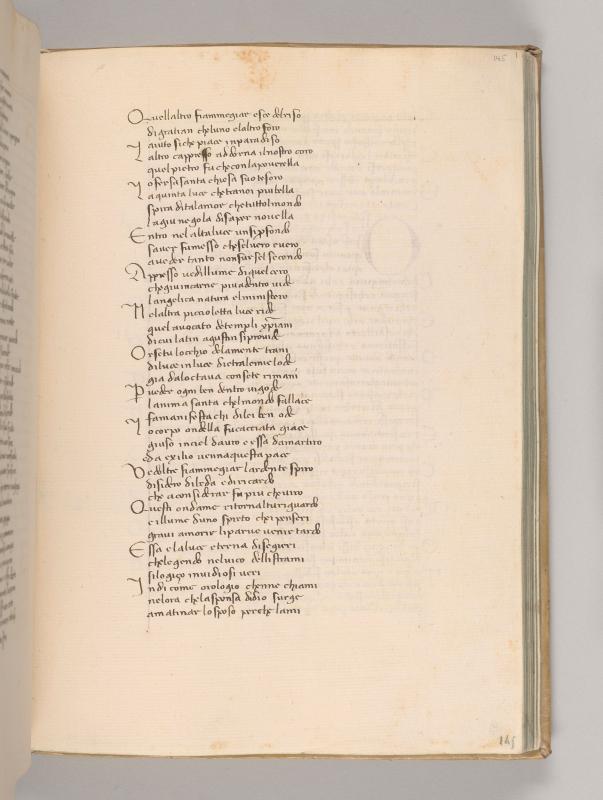 145
Quellaltro fiammegiar esce delriso
digratian cheluno elaltro foro
aiuto siche piace inparadiso
Laltro cappresso addorna ilnostro coro
quel pietro fu checonlapouerella
oferse asanta chiesa suo tesoro
La quinta luce chetranoi piubella
spira ditalamor chetuttolmondo
lagiu negola disaper nouella
Entro nel altaluce unsyprofondo
sauer fumesso chesel uero e uero
aueder tanto nonsurse l secondo
Appresso uedillume diquelcero
chegiu incarne piuadentro uide
langelica natura elministero
Nelaltra piccioletta luce ride
quel auocato detempli xpiani
di cui latin agustin siprouide
Orsetu locchio delamente trani
diluce inluce dietralemielode
gia dalottaua consete rimani
Pueder ogni ben dentro uigode
lanima santa chelmondo fallace
famanifesta chi dilei ben ode
Locorpo ondella fu cacciata giace
giuso inciel dauro e essa damartiro
eda exilio uennaquesta pace
Vedoltre fiammegiar lardente spiro
disidero dibeda e diricardo
che aconsiderar fu piu cheuiro
Questi ondame ritornalturiguardo
e illume duno spirto chei penseri
graui amorir liparue uenir tardo
Essa elaluce eterna disegieri
chelegendo neluico dellistrami
silogiço inuidiosi ueri
Indi come orologio chenne chiami
nelora chelasponsa didio surge
amatinar losposo perche lami
145